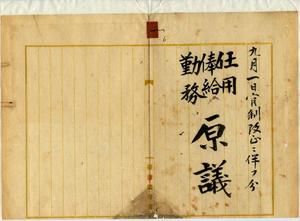 九月一日官制改正ニ伴フ分
任用
俸給
勤務
原議
一